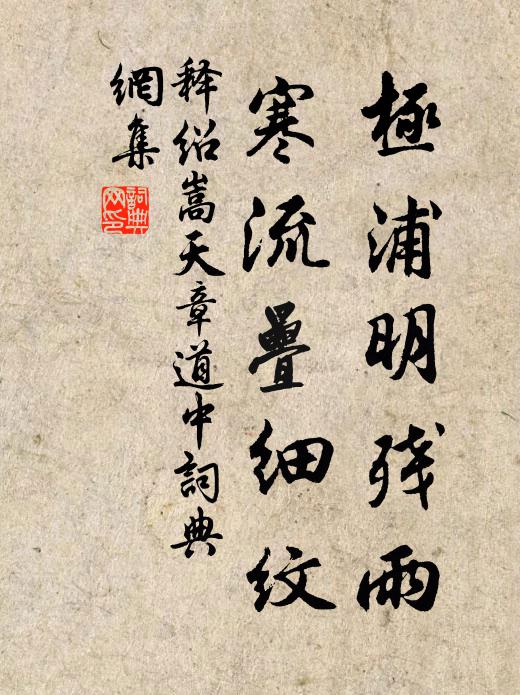 極浦明残雨
寒流疊细紋
释绍嵩天章道中詞典
網集
詞典網印